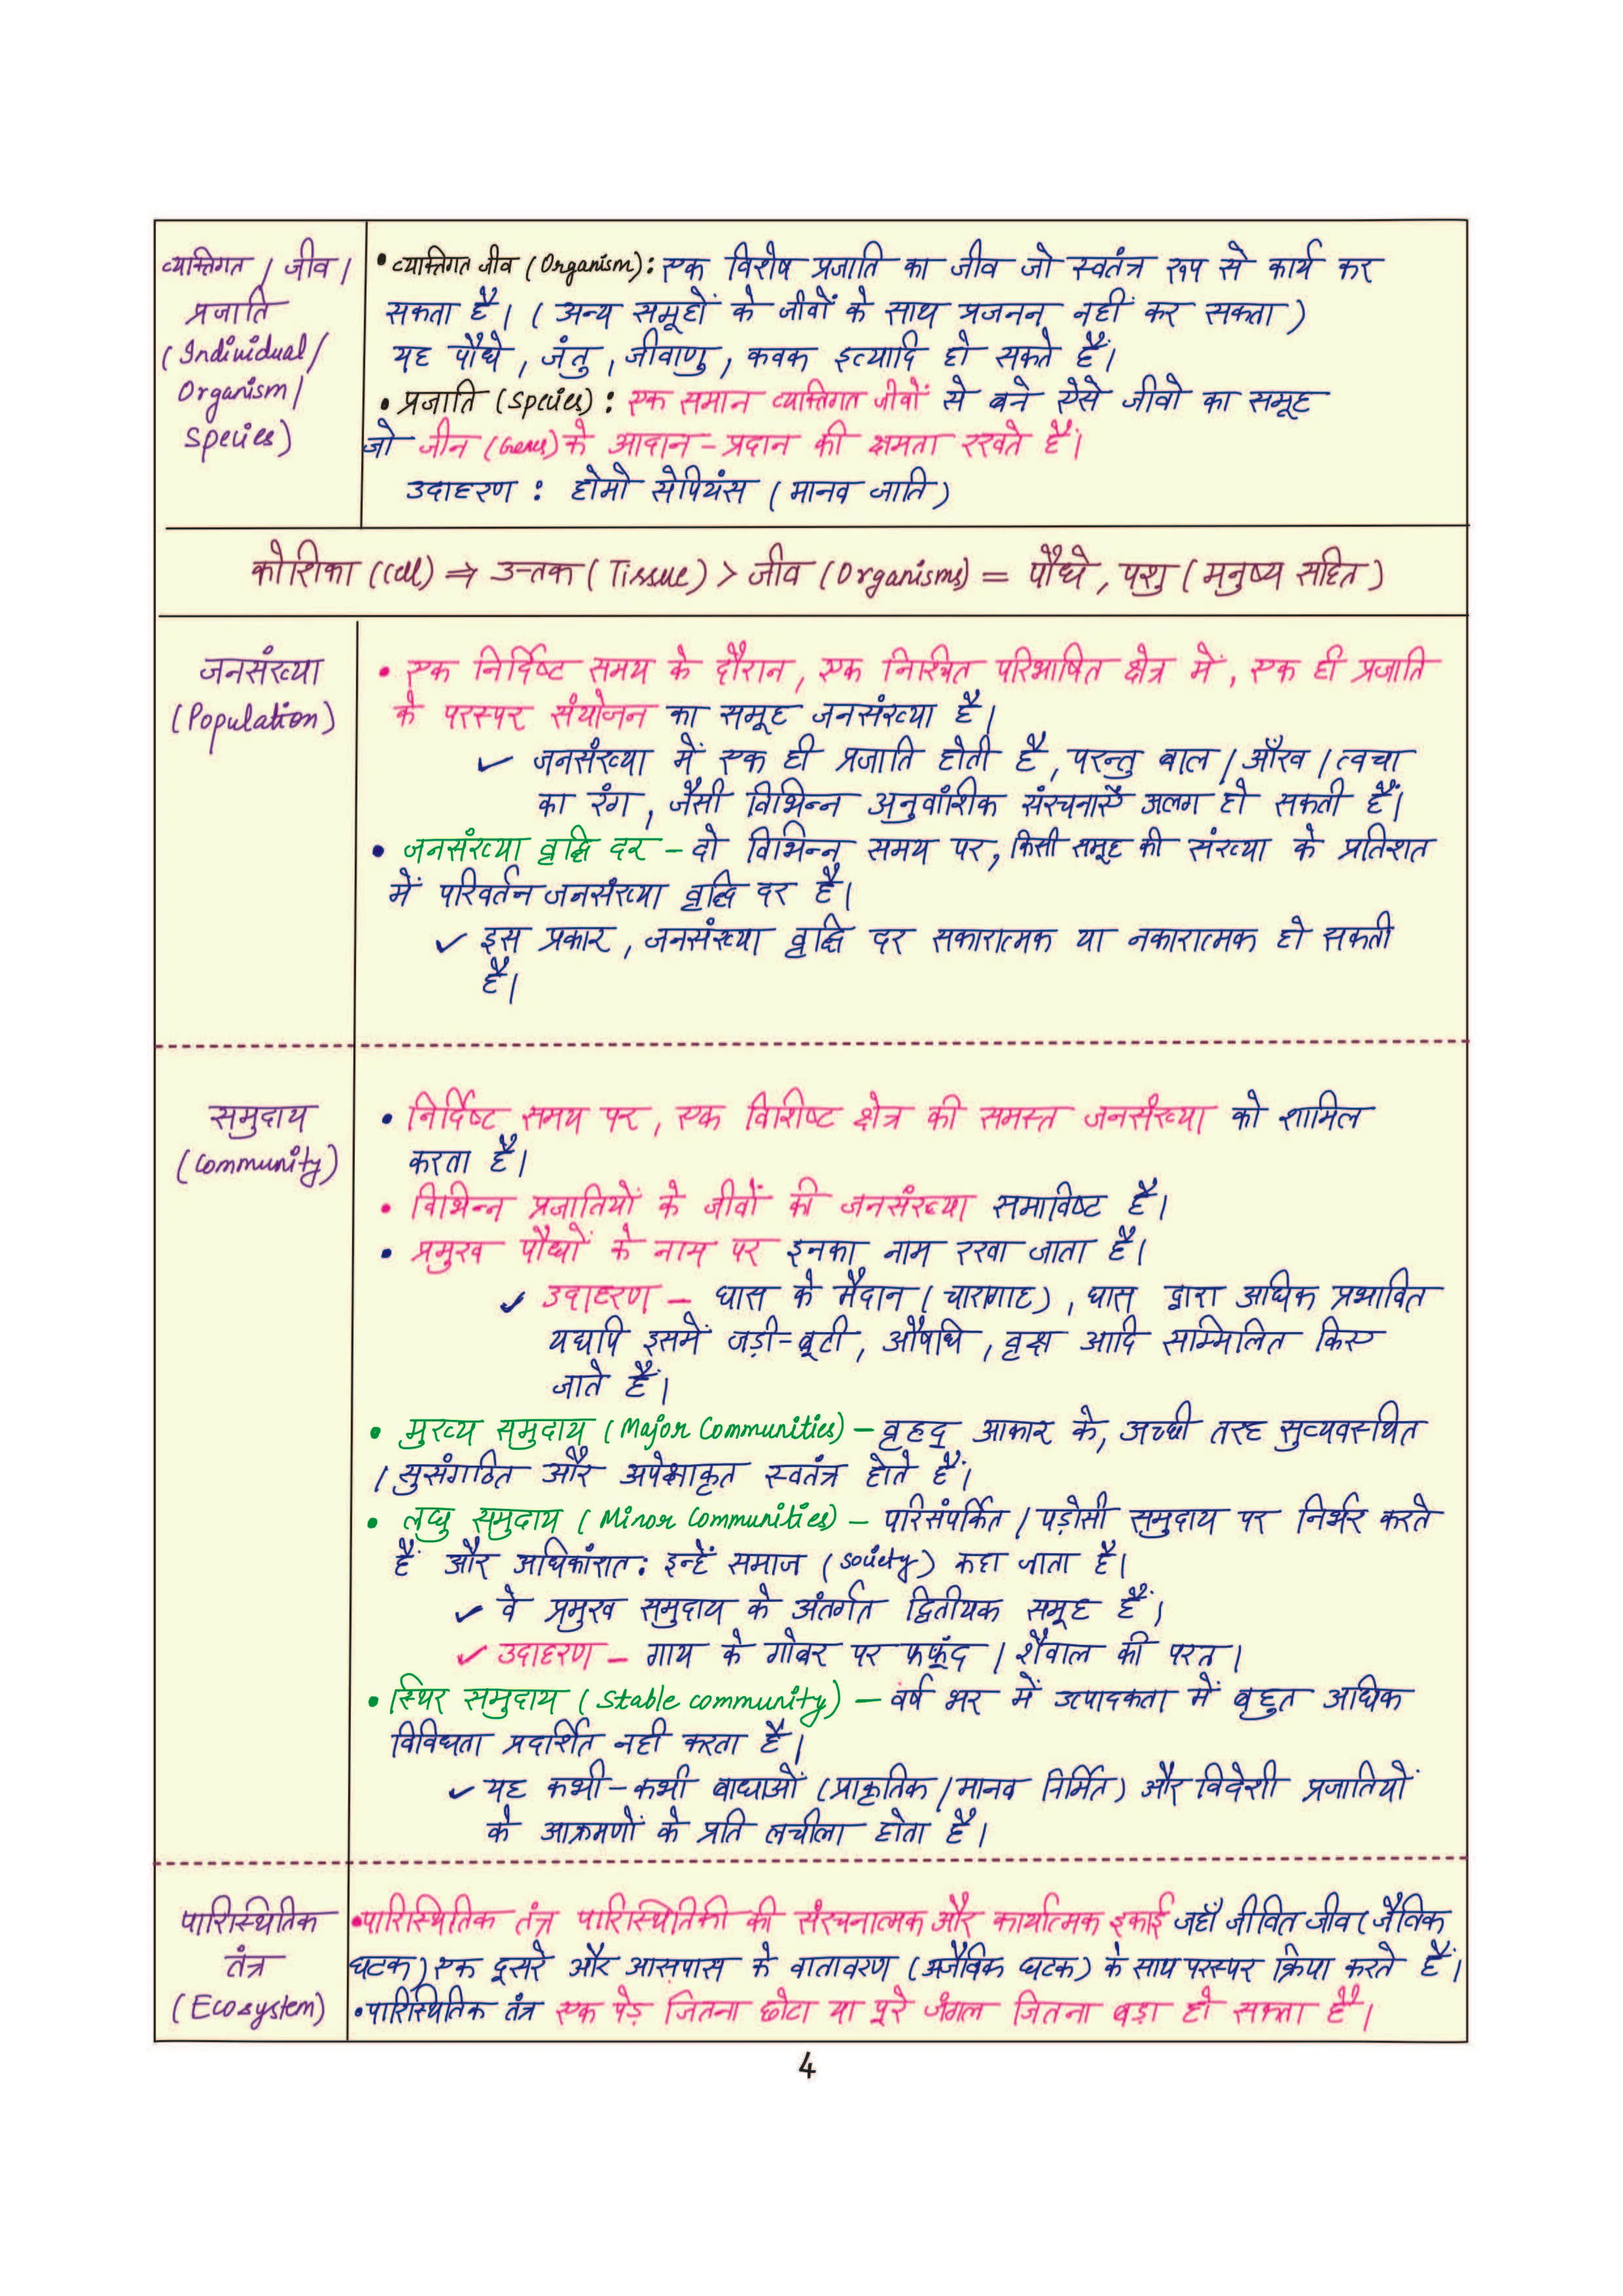 व्यक्तिगत / जीव /
प्रजाति
(Individual/
Organism/
Species)
• व्यक्तिगत जीव (Organism): एक विशेष प्रजाति का जीव जो स्वतंत्र रूप से कार्य कर
सकता है। (अन्य समूहों के जीवों के साथ प्रजनन नहीं कर सकता)
यह पौधे, जंतु, जीवाणु, कवक इत्यादि हो सकते हैं।
• प्रजाति (Species): एक समान व्यक्तिगत जीवों से बने ऐसे जीवो का समूह
जो जीन (Genes) के आदान-प्रदान की क्षमता रखते हैं।
उदाहरण : होमो सेपियंस (मानव जाति)
कोशिका (Cell) ⇒ उत्तक (Tissue) > जीव (Organisms) = पौधे, पशु (मनुष्य सहित)
जनसंख्या
(Population)
• एक निर्दिष्ट समय के दौरान, एक निश्चित परिभाषित क्षेत्र में, एक ही प्रजाति
के परस्पर संयोजन का समूह जनसंख्या है।
✓ जनसंख्या में एक ही प्रजाति होती है, परन्तु बाल / आँख / त्वचा
का रंग, जैसी विभिन्न अनुवांशिक संरचनाएँ अलग हो सकती हैं।
• जनसंख्या वृद्धि दर – दो विभिन्न समय पर, किसी समूह की संख्या के प्रतिशत
में परिवर्तन जनसंख्या वृद्धि दर है।
✓ इस प्रकार, जनसंख्या वृद्धि दर सकारात्मक या नकारात्मक हो सकती
है।
समुदाय
(Community)
• निर्दिष्ट समय पर, एक विशिष्ट क्षेत्र की समस्त जनसंख्या को शामिल
करता है।
• विभिन्न प्रजातियों के जीवों की जनसंख्या समाविष्ट है।
• प्रमुख पौधों के नाम पर इनका नाम रखा जाता है।
✓ उदाहरण – घास के मैदान (चारागाह), घास द्वारा अधिक प्रभावित
यद्यपि इसमें जड़ी-बूटी, औषधि, वृक्ष आदि सम्मिलित किए
जाते हैं।
• मुख्य समुदाय (Major Communities) – वृहद् आकार के, अच्छी तरह सुव्यवस्थित
/ सुसंगठित और अपेक्षाकृत स्वतंत्र होते हैं।
• लघु समुदाय (Minor Communities) – परिसंपर्कित / पड़ोसी समुदाय पर निर्भर करते
हैं और अधिकांशतः इन्हें समाज (Society) कहा जाता है।
✓ वे प्रमुख समुदाय के अंतर्गत द्वितीयक समूह हैं।
✓ उदाहरण – गाय के गोबर पर फफूंद / शैवाल की परत।
• स्थिर समुदाय (Stable community) – वर्ष भर में उत्पादकता में बहुत अधिक
विविधता प्रदर्शित नही करता है।
✓ यह कभी-कभी बाधाओं (प्राकृतिक / मानव निर्मित) और विदेशी प्रजातियों
के आक्रमणों के प्रति लचीला होता है।
पारिस्थितिक
तंत्र
(Ecosystem)
• पारिस्थितिक तंत्र पारिस्थितिकी की संरचनात्मक और कार्यात्मक इकाई जहाँ जीवित जीव (जैविक
घटक) एक दूसरे और आसपास के वातावरण (अजैविक घटक) के साथ परस्पर क्रिया करते हैं।
• पारिस्थितिक तंत्र एक पेड़ जितना छोटा या पूरे जंगल जितना बड़ा हो सकता है।
4